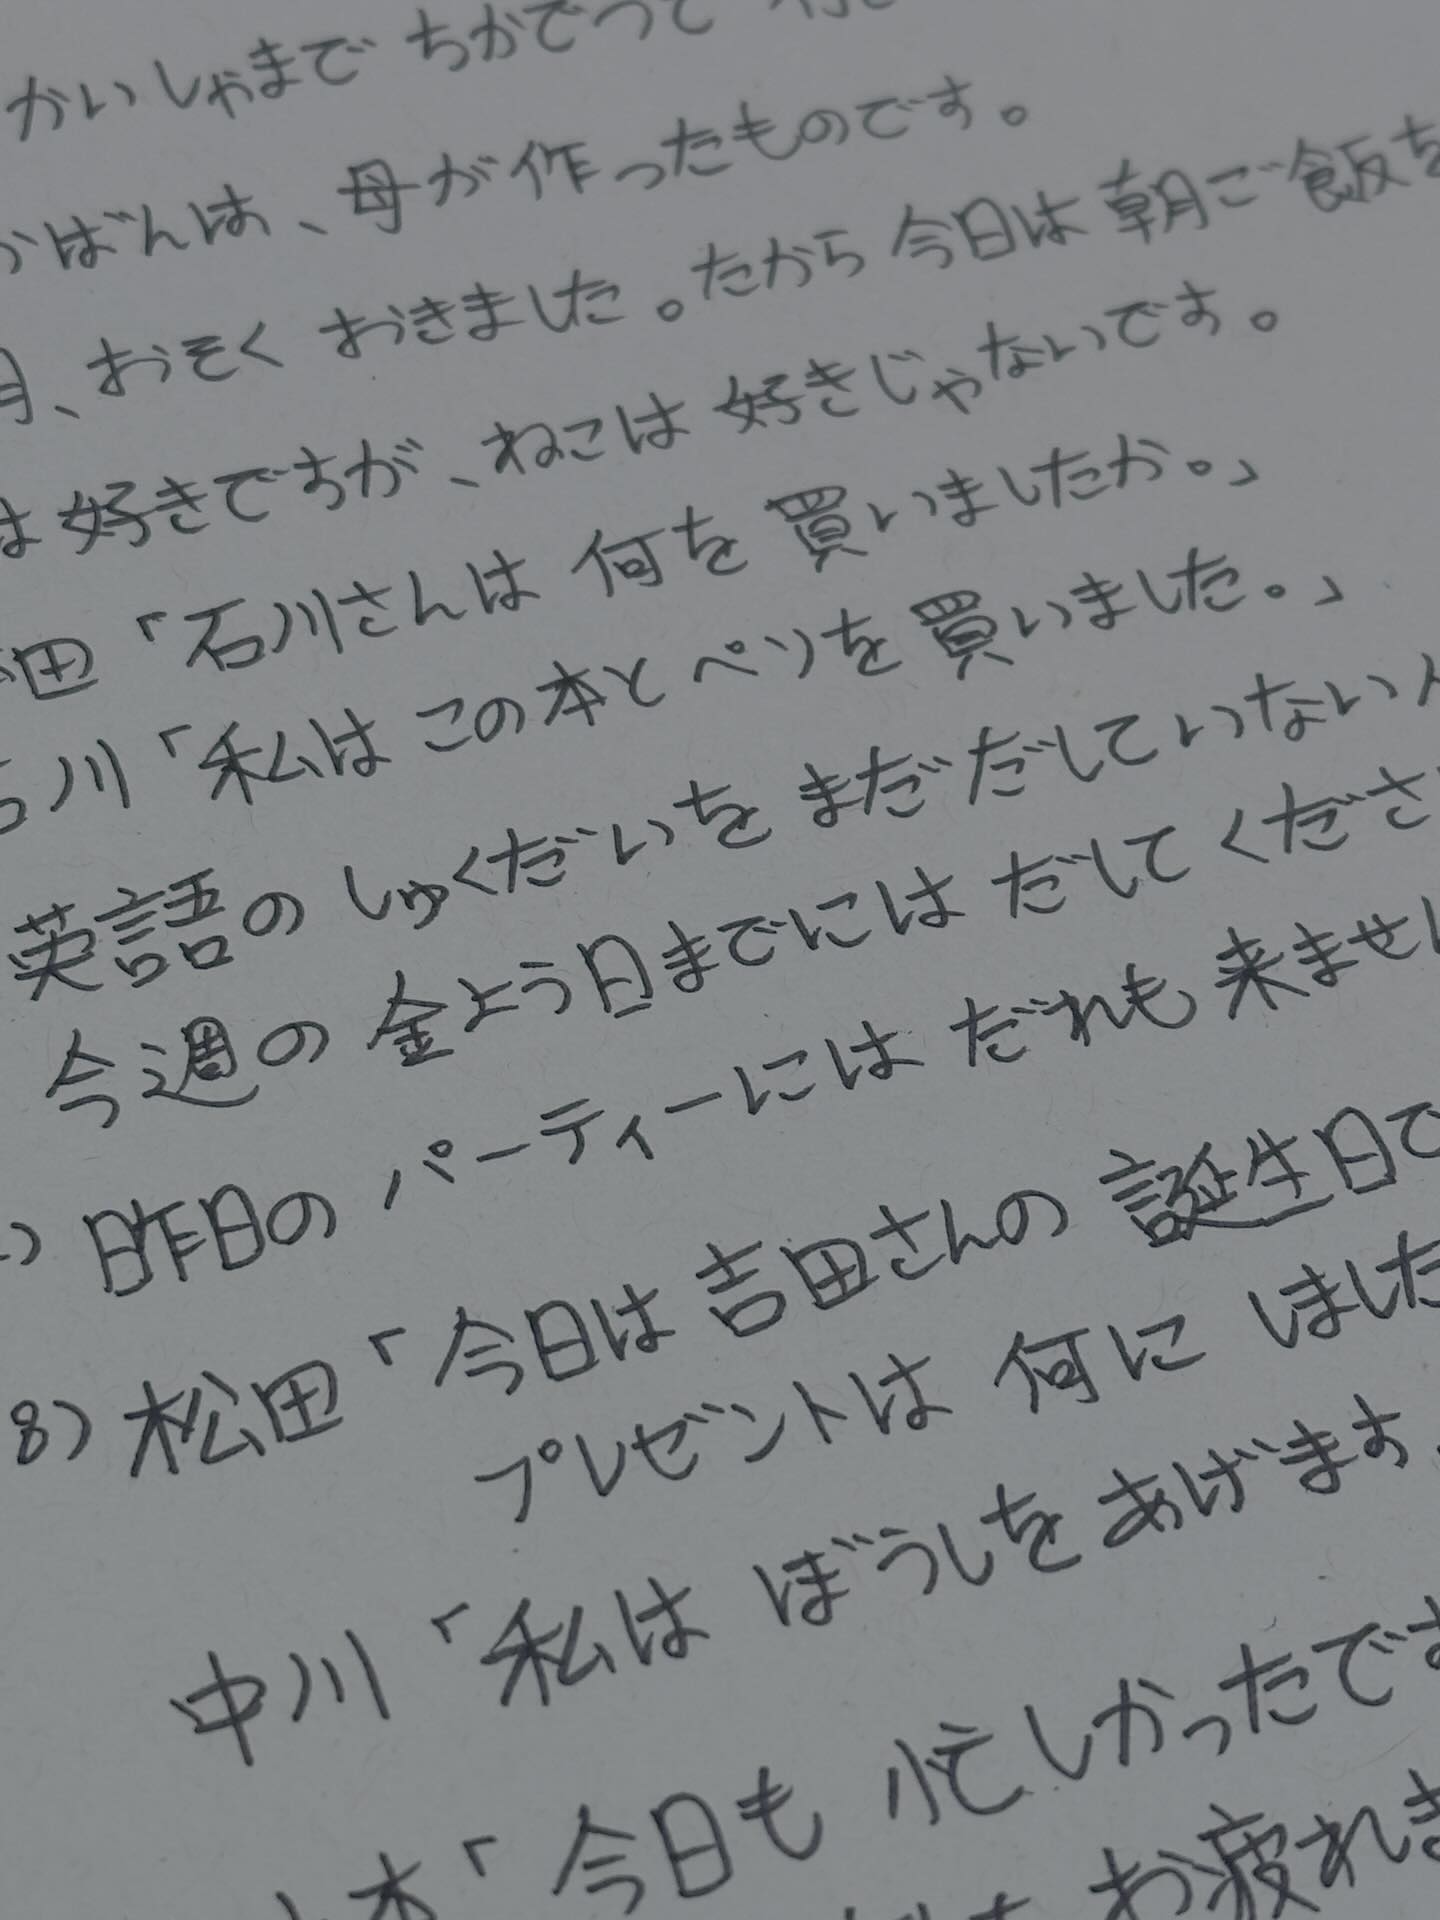 かいしゃまで ちかてつで
かばんは、母が作ったものです。
、おそく おきました。だから 今日は 朝ご飯を
は 好きですが、ねこは 好きじゃないです。
田「石川さんは 何を 買いましたか。」
石川「私は この本と ペンを 買いました。」
英語の しゅくだいを まだ だしていない
今週の 金よう日までには だして くださ
昨日の パーティーには だれも 来ませ
8) 松田「今日は 吉田さんの 誕生日で
プレゼントは 何に しました
中川「私は ぼうしを あげます
木「今日も 忙しかったです
お疲れさ